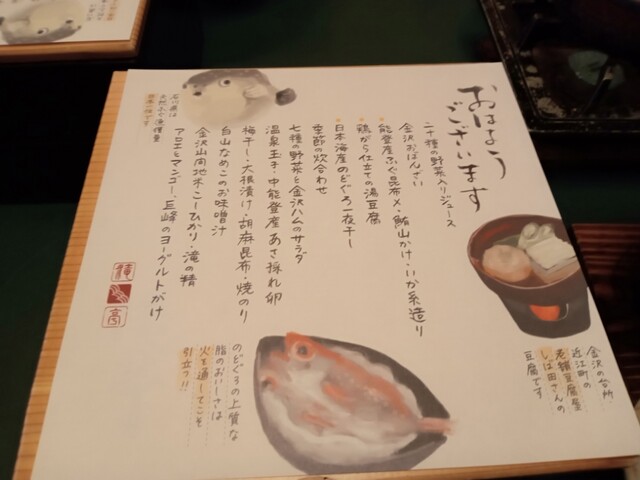 おはよう
ございます
二十種の野菜入りジュース
金沢おばんざい
能登産ふぐ昆布〆・鮪山かけ・いか糸造り
鶏がら仕立ての湯豆腐
日本海産のどぐろ一夜干し
季節の炊合わせ
七種の野菜と金沢ハムのサラダ
温泉玉子・中能登産あさ採れ卵
梅干し・大根漬け・胡麻昆布・焼のり
白山なめこのお味噌汁
金沢山間地木こしひかり・滝の精
アロエとマンゴー、巨峰のヨーグルトがけ
石川県は
天然ふぐ漁獲量
日本一位です
金沢の台所
近江町の
老舗豆腐屋
しば田さんの
豆腐です
のどぐろの上質な
脂のおいしさは
火を通してこそ
引立つ!!
亭